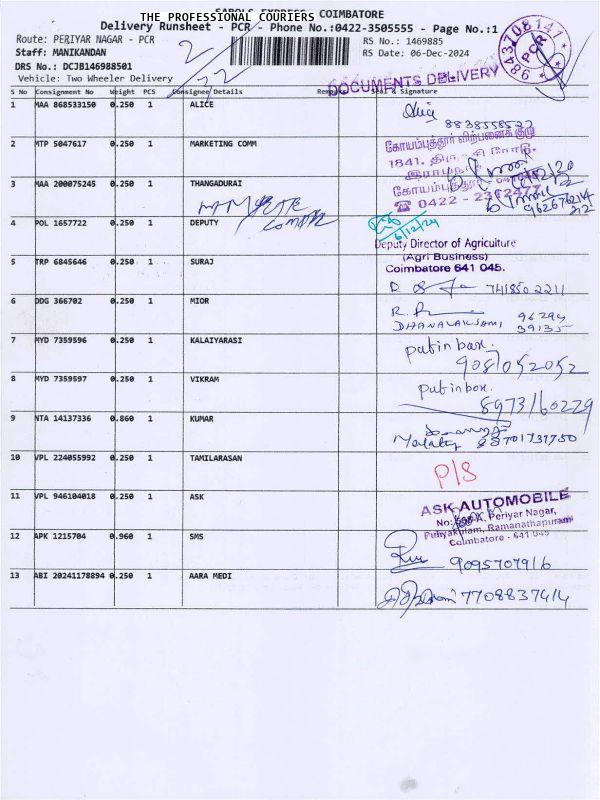 THE PROFESSIONAL COURIERS
COIMBATORE
Delivery Runsheet - PCR - Phone No.:0422-3505555 - Page No.:1
Route: PERIYAR NAGAR - PCR
RS No.: 1469885
Staff: MANIKANDAN
RS Date: 06-Dec-2024
DRS No.: DCJB146988501
Vehicle: Two Wheeler Delivery
2
32
DOCUMENTS DELIVERY
9843708141
PCR
S No Consignment No Weight PCS Consignee Details Signature
1 MAA 868533150 0.250 1 ALICE
Alice
2 MTP 5047617 0.250 1 MARKETING COMM
கோயம்புத்தூர் விற்பனைக் குழு
1841,
3 MAA 200075245 0.250 1 THANGADURAI
☎ 0422 -
4 POL 1657722 0.250 1 DEPUTY
6/12/24
Deputy Director of Agriculture
(Agri Business)
Coimbatore 641 045.
5 TRP 6845646 0.250 1 SURAJ
741850 2211
6 DDG 366702 0.250 1 MIOR
DHANALAKSHMI
7 MYD 7359596 0.250 1 KALAIYARASI
put in box.
9087052052
8 MYD 7359597 0.250 1 VIKRAM
put in box.
8973160229
9 NTA 14137336 0.860 1 KUMAR
10 VPL 224055992 0.250 1 TAMILARASAN
P/S
11 VPL 946104018 0.250 1 ASK
ASK AUTOMOBILE
Periyar Nagar,
Puliyakulam, Ramanathapuram
Coimbatore - 641 045
12 APK 1215704 0.960 1 SMS
9095707916
13 ABI 20241178894 0.250 1 AARA MEDI
7708837414